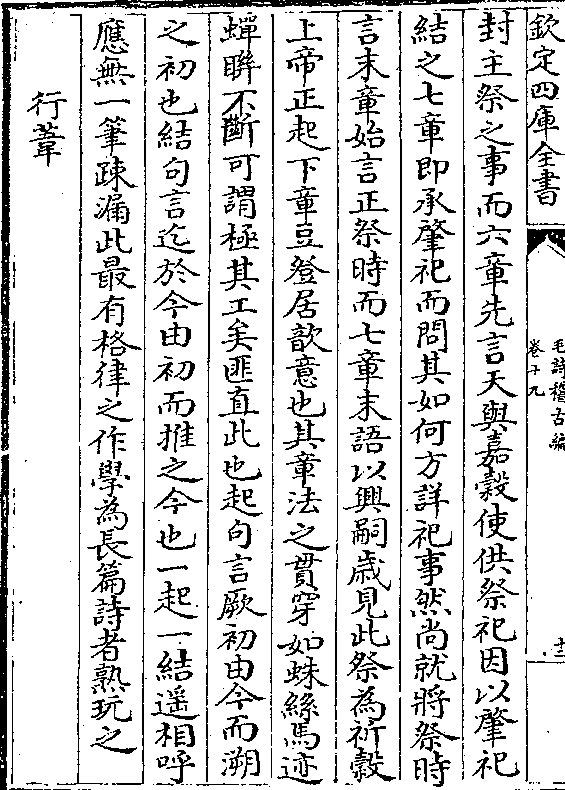 欽定四庫全書
毛詩稽古編
卷十九
十二
封主祭之事而六章先言天與嘉穀使供祭祀因以肇祀
結之七章即承肇祀而問其如何方詳祀事然尚就將祭時
言末章始言正祭時而七章末語以興嗣歳見此祭為祈穀
上帝正起下章豆登居歆意也其章法之貫穿如蛛絲馬迹
蟬聨不斷可謂極其工矣匪直此也起句言厥初由今而溯
之初也結句言迄於今由初而推之今也一起一結遥相呼
應無一筆疎漏此最有格律之作學為長篇詩者熟玩之
行葦